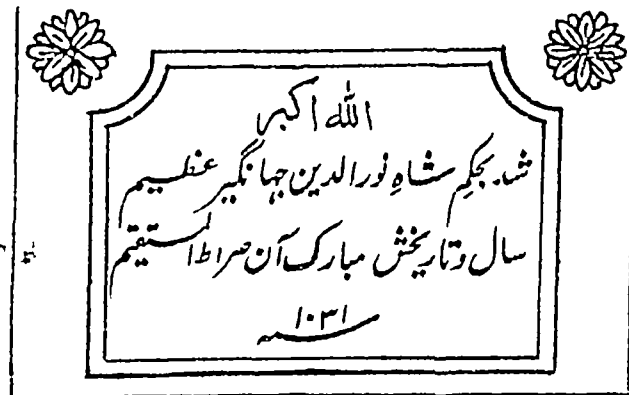 الله اکبر
شد بحکمِ شاہِ نورالدین جہانگیر عظیم
سال وتاریخش مبارک آن صراط المستقیم
۱۰۳۱